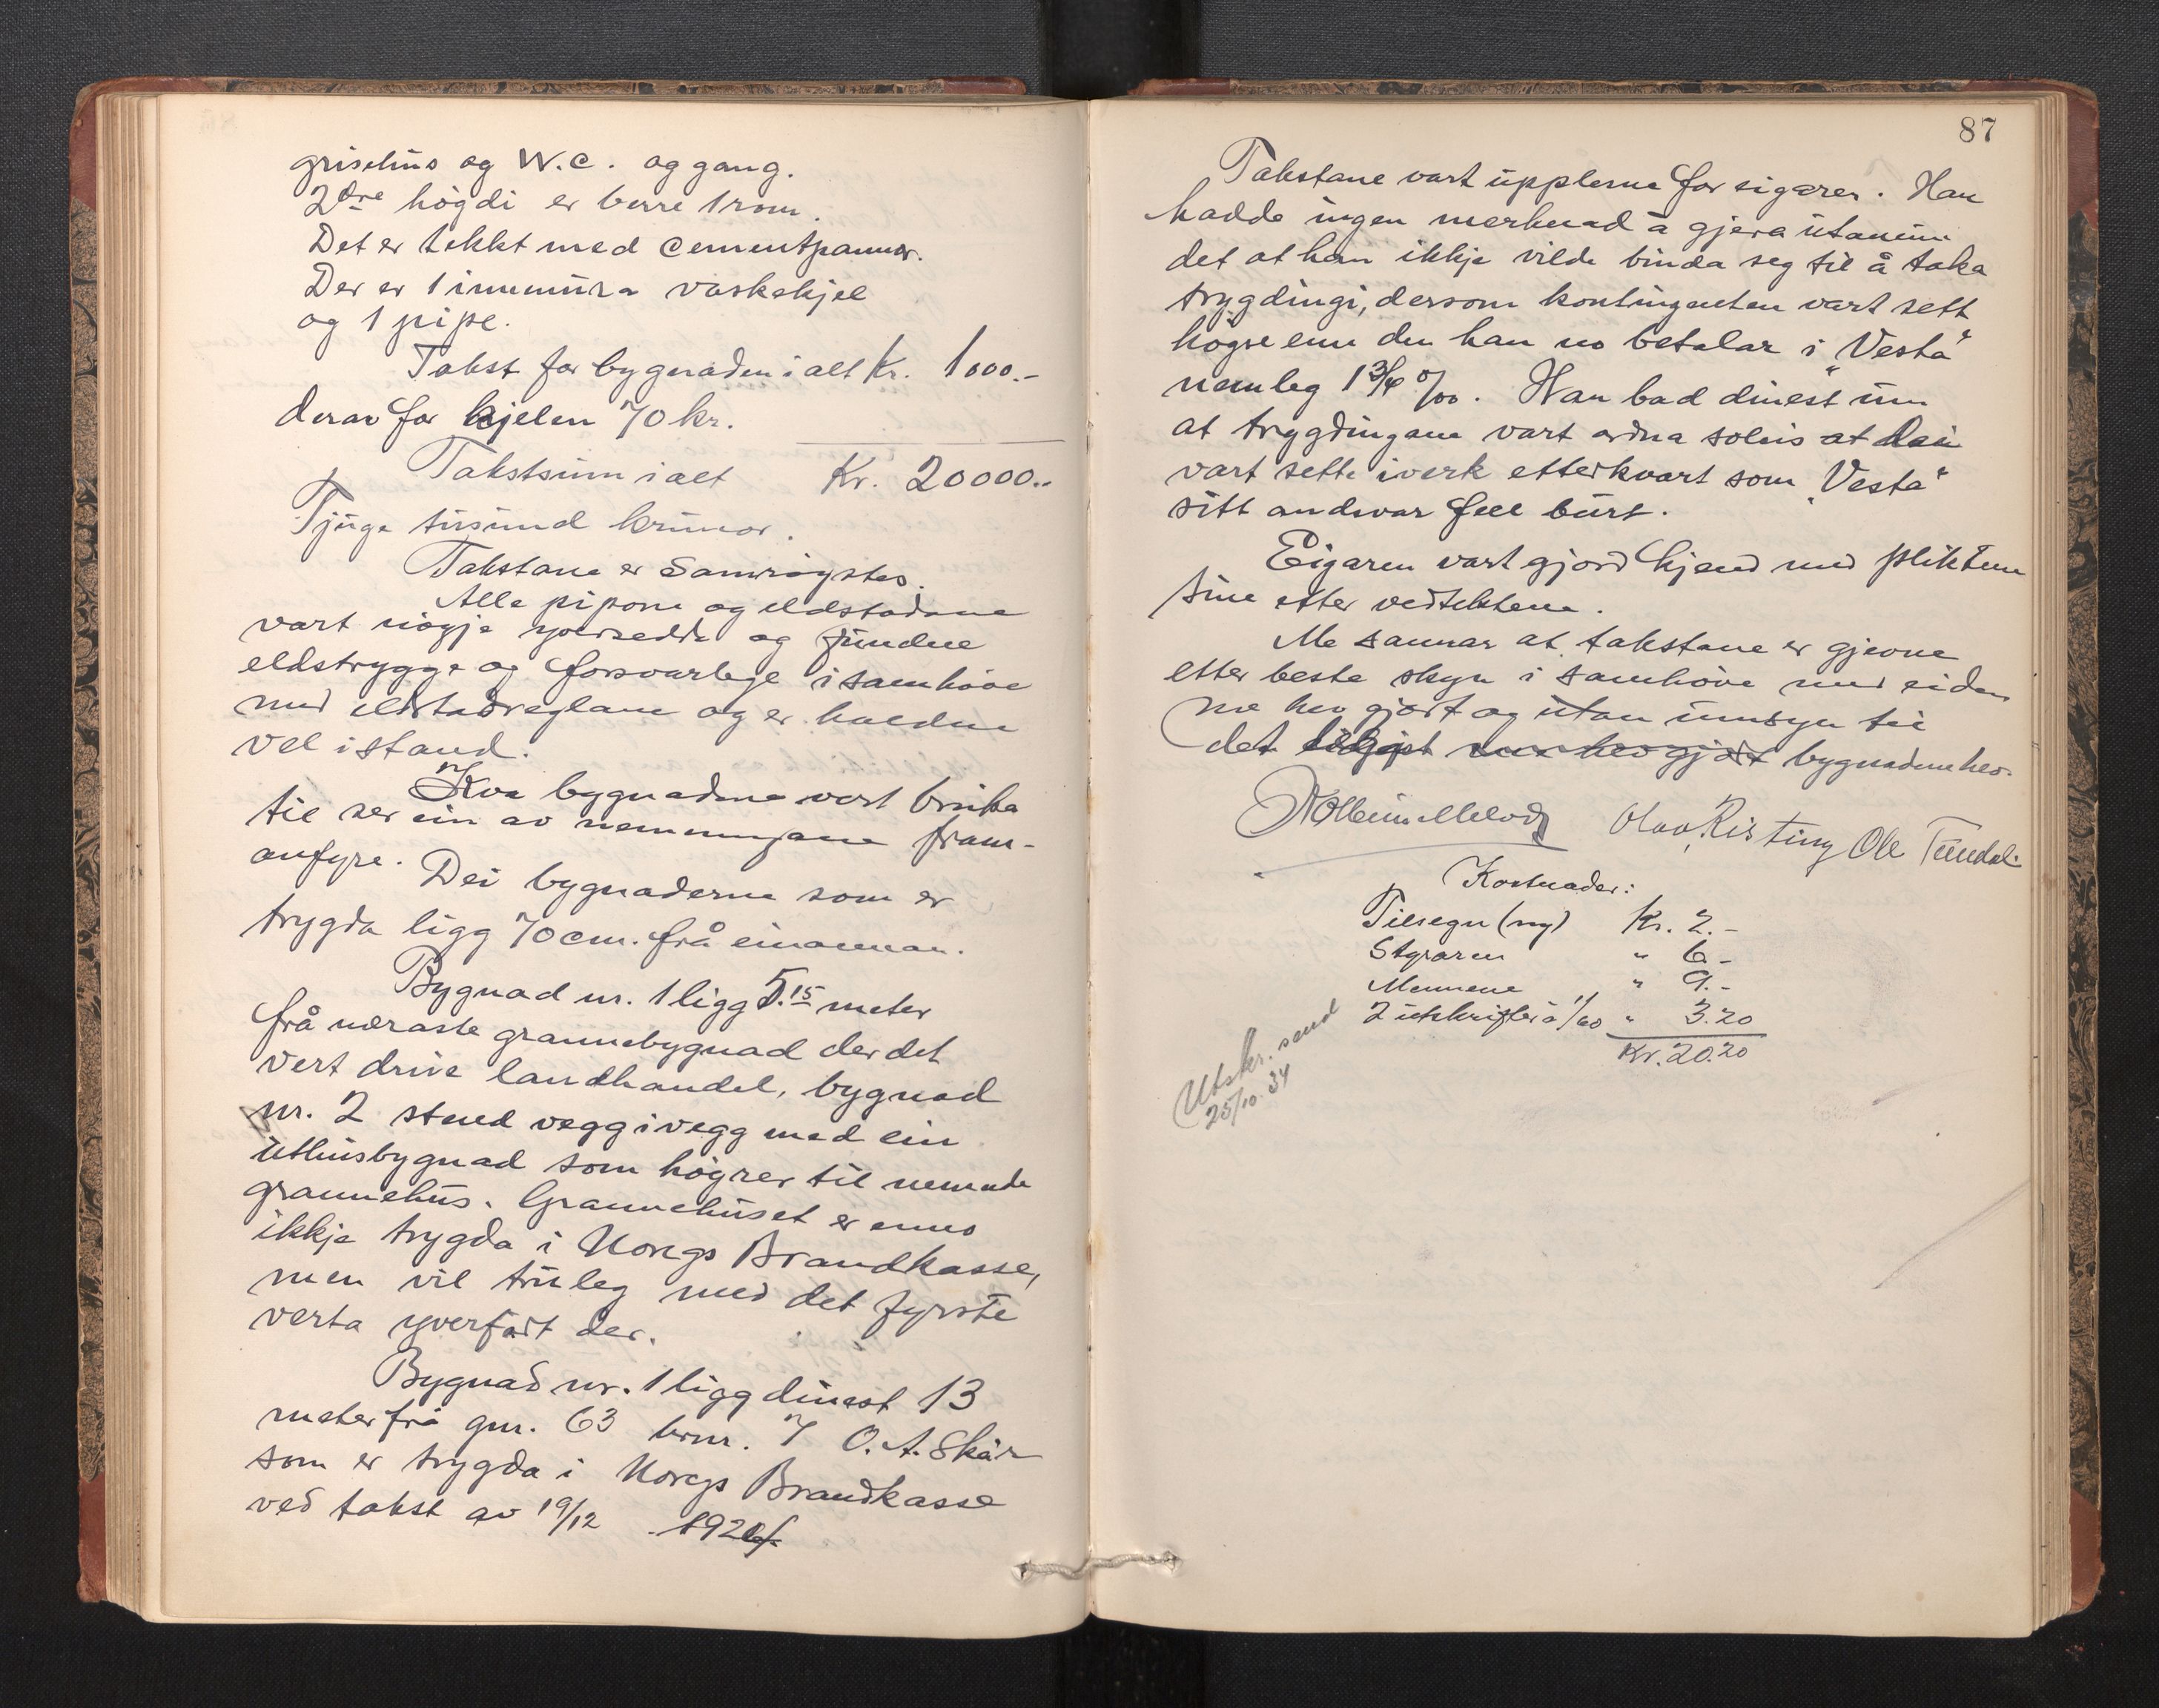 grisehus og W.C. og gang.
2dre högdi er berre 1 rom.
Det er tekkt med cementpannor.
Der er 1 innmura vaskekjel
og 1 pipe.
Takst for bygnaden i alt Kr. 1000.-
derav for kjelen 70 kr.
Takstsum i alt Kr. 20000.-
Tjuge tusund krunor.
Takstane er samröystes.
Alle pipone og eldstadane
vart nögje yversedde og fundne
eldstrygge og forsvarlege i samhöve
med eldstadreglane og er haldne
vel i stand.
Kva bygnadene vert bruka
til ser ein av nemningane fram-
anfyre. Dei bygnaderne som er
trygda ligg 70 cm. frå einannan.
Bygnad nr. 1 ligg 5.15 meter
frå næraste grannebygnad der det
vert drive landhandel, bygnad
nr. 2 stend vegg i vegg med ein
uthusbygnad som höyrer til nemnde
grannehus. Grannehuset er enno
ikkje trygda i Noregs Brandkasse,
men vil truleg med det fyrste
verta yverfört der.
Bygnad nr. 1 ligg dinest 13
meter frå gnr. 63 brnr. 7 O. A. Skår
som er trygda i Noregs Brandkasse
ved takst av 19/12
87
Takstane vart upplesne for eigaren. Han
hadde ingen merknad å gjera utanum
det at han ikkje vilde binda seg til å taka
trygdingi, dersom kontingenten vart sett
högre enn den han no betalar i "Vesta"
nemleg 1 3/4 o/oo. Han bad dinest um
at trygdingane vart ordna soleis at dei
vart sette i verk etterkvart som "Vesta"
sitt andsvar fell burt.
Eigaren vart gjord kjend med pliktene
sine etter vedtektene.
Me sannar at takstane er gjevne
etter beste skyn i samhöve med eiden
me hev gjort og utan umsyn til
det me hev gjort bygnadene hev.
Olav Risting Ole Tundal
Kostnader:
Tilsegn (ny) Kr. 2.-
Styraren " 6.-
Mennene " 9.-
2 utskrifter à 1/60 " 3.20
Kr. 20.20
Utskr. send
25/10. 34